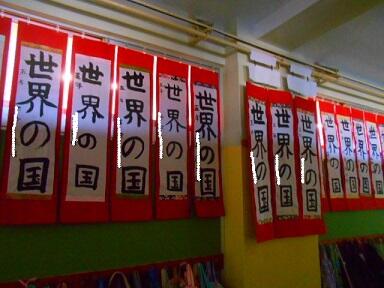 世界の国
世界の国
世界の国
世界の国
世界の国
世界の国
世界の国
世界の国
世界の国
世界の国
世界の国
世界の国